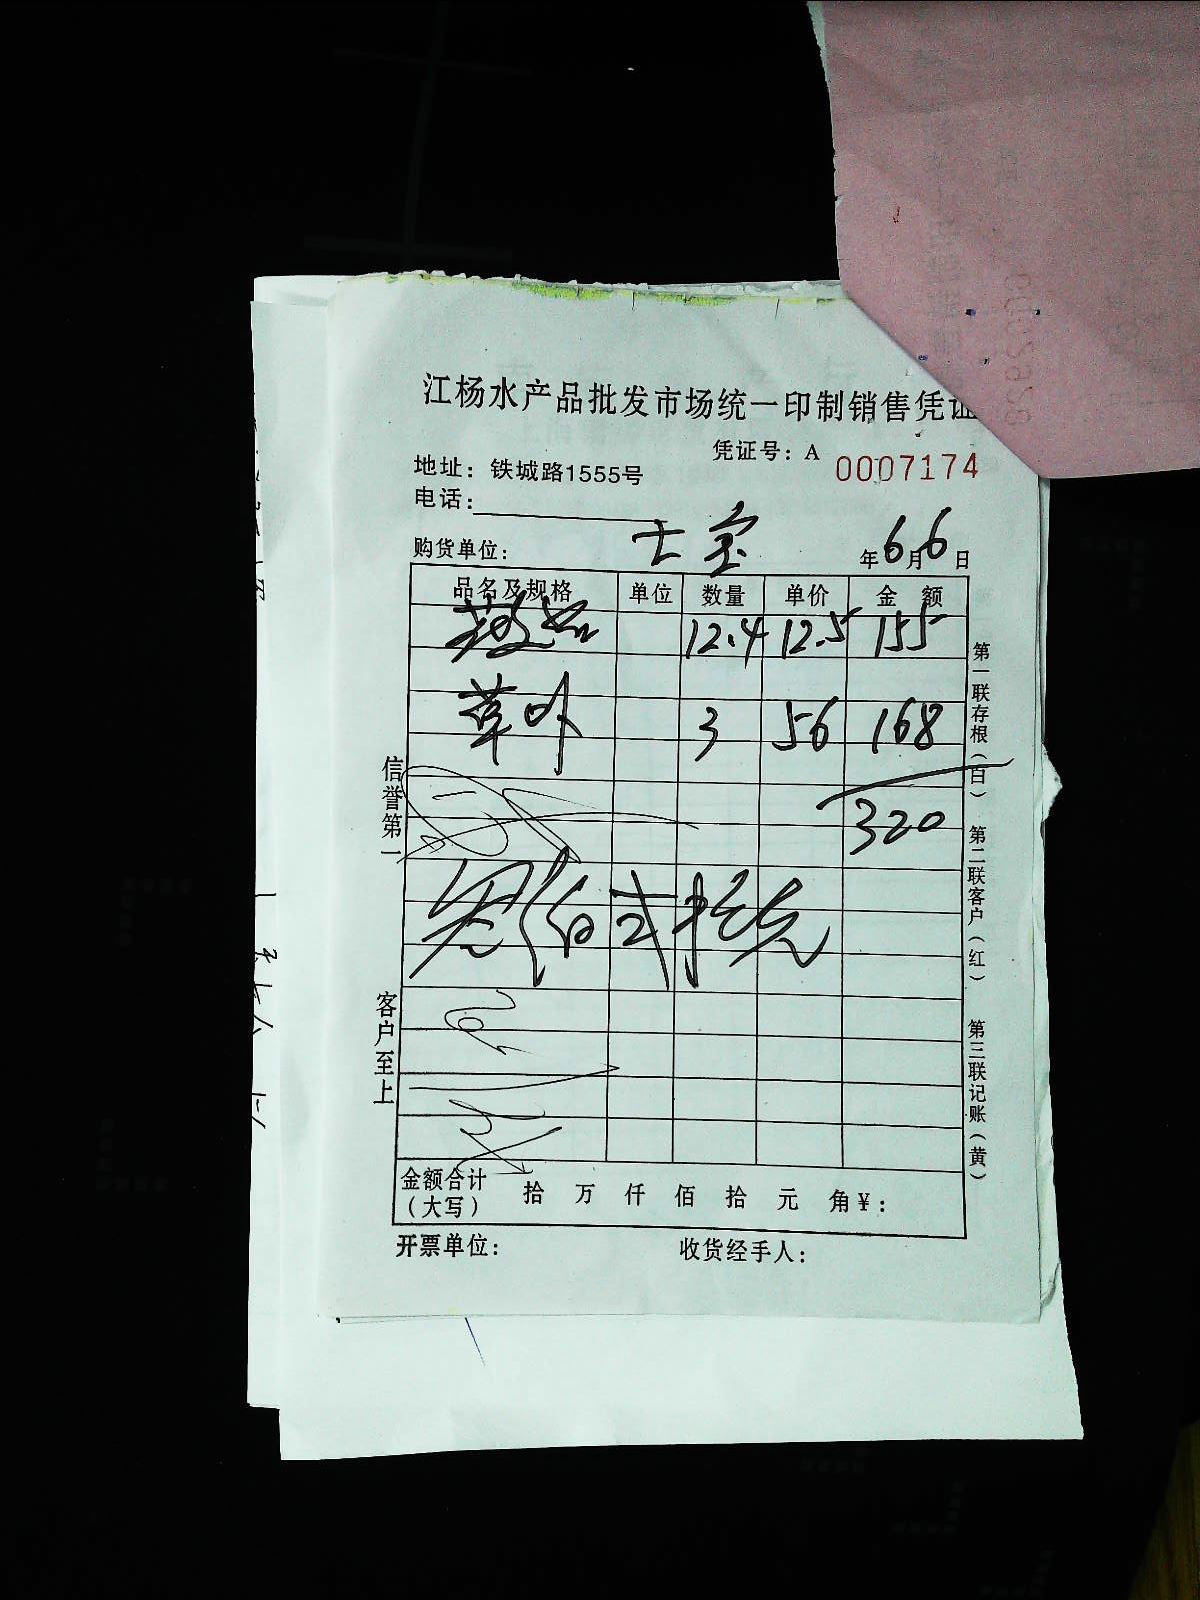 江杨水产品批发市场统一印制销售凭证
凭证号：A 0007174
地址：铁城路1555号
电话：
购货单位： 七宝 年6月6日
品名及规格 单位 数量 单价 金额
12.4 12.5 155
草虾 3 56 168
320
叁佰贰拾元
金额合计（大写） 拾 万 仟 佰 拾 元 角￥：
开票单位： 收货经手人：
信誉第一
客户至上
第一联存根（白）
第二联客户（红）
第三联记账（黄）